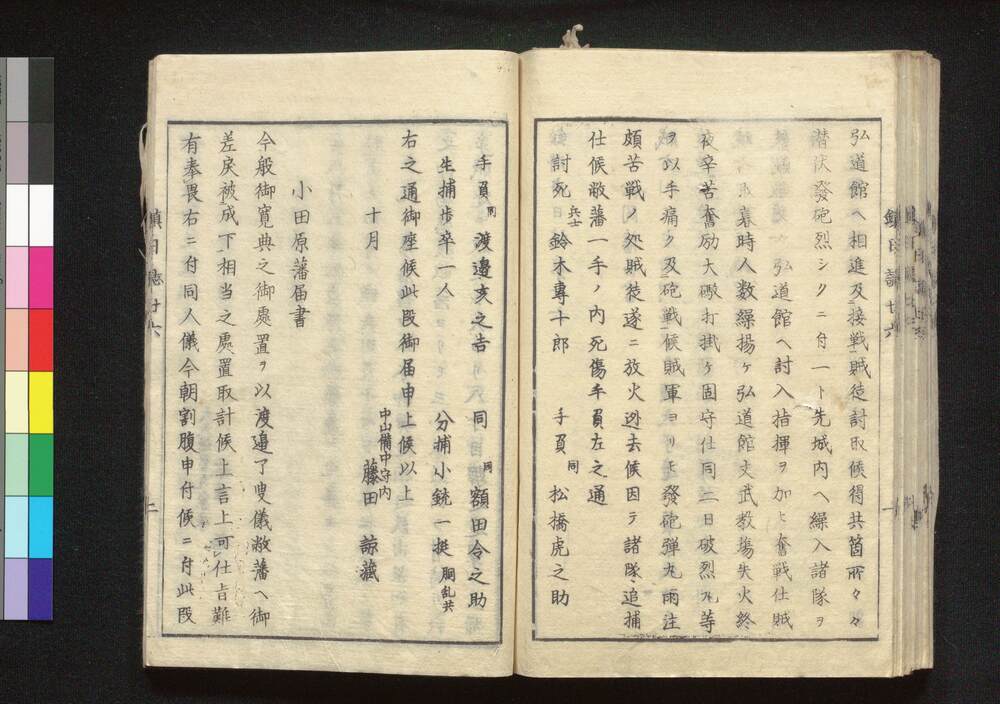 弘道館ヘ相進及接戦賊徒討取候得共箇所々々
潜伏發砲烈シクニ付一ト先城内ヘ繰入諸隊ヲ
弘道館ヘ討入指揮ヲ加ヒ奮戦仕賊
暮時人数繰揚ケ弘道館文武教場失火終
夜辛苦奮励大礮打掛ケ固守仕同二日破烈丸等
ヲ以手痛ク及砲戦候賊軍ヨリモ發砲弾丸雨注
頗苦戦ノ処賊徒遂ニ放火逊去候因テ諸隊追捕
仕候敝藩一手ノ内死傷手負左之通
討死 兵士 鈴木專十郎 手負 同 松橋虎之助
手負 同 渡邉亥之吉 同 同 額田令之助
生捕歩卒一人 分捕小銃一挺 胴乱共
右之通御座候此段御届申上候以上
十月 中山備中守内 藤田諒藏
小田原藩届書
今般御寛典之御處置ヲ以渡邉了叟儀敝藩ヘ御
差戻被成下相当之處置取計候上言上可仕旨難
有奉畏右ニ付同人儀今朝割腹申付候ニ付此段
鎮日誌廿六
一
鎮日誌廿六
二